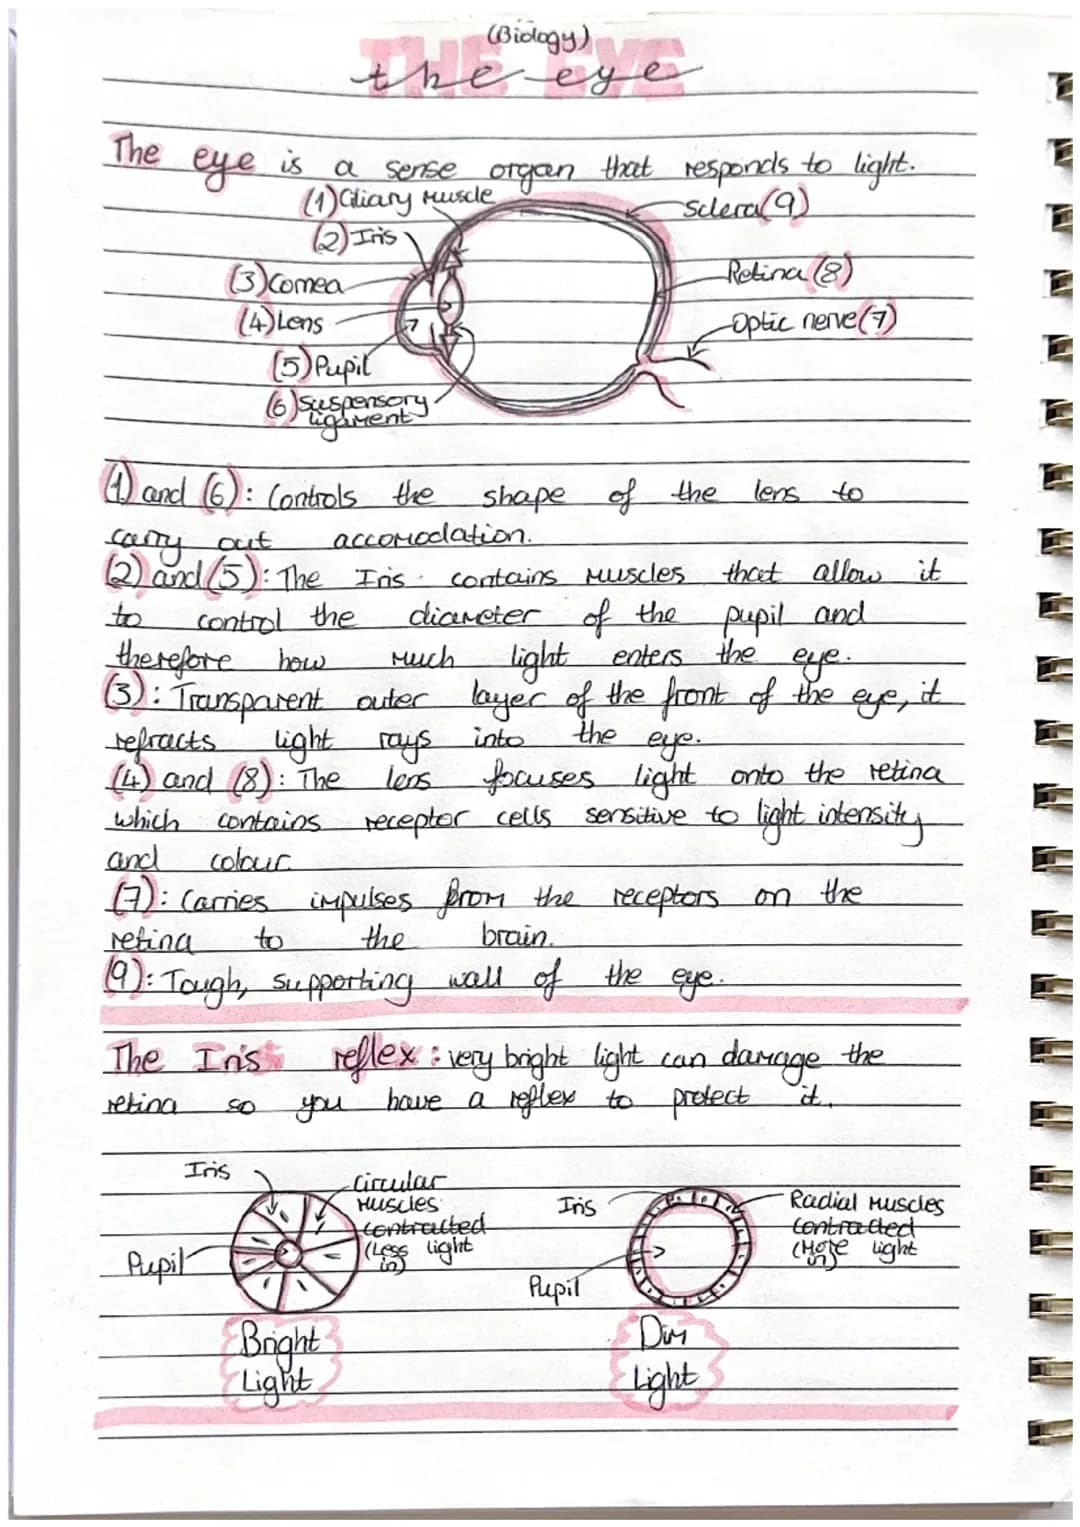 (Biology)
THE EYE
the eye
The eye is a sense organ that responds to light.
(1) Ciliary Muscle
Sclera (9)
(2) Iris
(3) Cornea
Retina (8)
(4) Lens
Optic nerve (7)
(5) Pupil
(6) Suspensory
ligament
(1) and (6): Controls the shape of the lens to
carry out accomodation.
(2) and (5): The Iris contains muscles that allow it
to control the diameter of the pupil and
therefore how much light enters the eye.
(3): Transparent outer layer of the front of the eye, it
refracts light rays into the eye.
(4) and (8): The lens focuses light onto the retina
which contains receptor cells sensitive to light intensity
and colour.
(7): Carries impulses from the receptors on the
retina to the brain.
(9): Tough, supporting wall of the eye.
The Iris reflex: very bright light can damage the
retina so you have a reflex to protect it.
Iris
circular
muscles
contracted
(Less light
in)
Pupil
Bright
Light
Iris
Radial muscles
contracted
(More light
in)
Pupil
Dim
Light